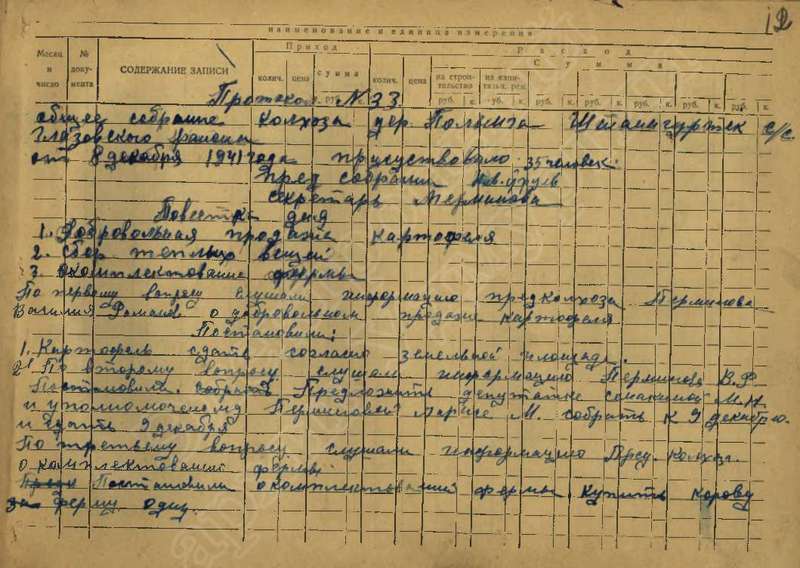 12
наименование и единица измерения
Месяц и число
№ документа
СОДЕРЖАНИЕ ЗАПИСИ
Приход
Расход
колич. цена сумма колич. цена
Сумма
на строительство
руб. к. руб. к. руб. к. руб. к. руб. к. руб. к. руб. к.
Протокол № 33
общее собрание колхоза дер. Полынга Штанигуртск с/с
Глазовского района
от 8 декабря 1941 года присуствовало 35 человек.
Пред собрания
секретарь Перминова
Повестка дня
1. Добровольная продажа картофеля
2. Сбор теплых вещей
3. Окомплектование фермы
По первому вопросу слушали информацию предколхоза Перминова
Василия о добровольном продаже картофеля
Постановили:
1. Картофель сдать согласно земельной площаде.
2. По второму вопросу слушали информацию Перминова В.Ф
Постановили собрать Предложить депутатке М.Н.
и уполномоченому Перминовой М. собрать к 9 декабрю.
и сдать 9 декабря
По третьему вопросу слушали информацию Пред. колхоза
о комплектований фермы:
Постановили окомплектований фермы купить корову
за ферму одну.